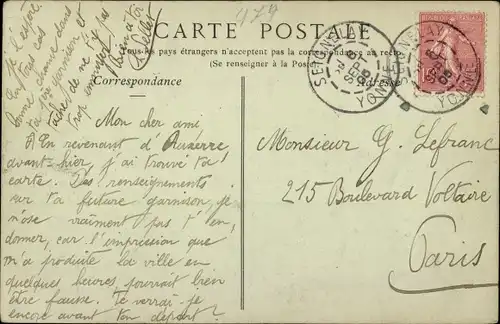 CARTE POSTALE
Tous les pays étrangers n'acceptent pas la correspondance au recto
(Se renseigner à la Poste)
Correspondance
Adresse
SEIGNELAY
YONNE
Mon cher ami
En revenant d'Auxerre
avant-hier, j'ai trouvé ta
carte. Des renseignements
sur ta future garnison, je
n'ose vraiment pas t'en
donner, car l'impression que
m'a produite la ville en
quelques heures pourrait bien
être fausse. Te verrai-je
encore avant ton départ ?
Je l'espère.
En tous cas
bonne chance dans
ta garnison et
tâche de ne pas
trop
Monsieur G. Lefranc
215 Boulevard Voltaire
Paris